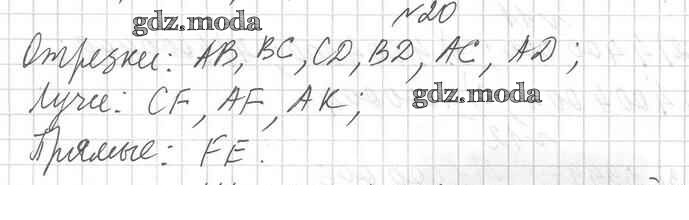 №20
gdz.moda
Отрезки: AB, BC, CD, BD, AC, AD;
Лучи: CF, AF, AK;
gdz.moda
Прямые: FE.